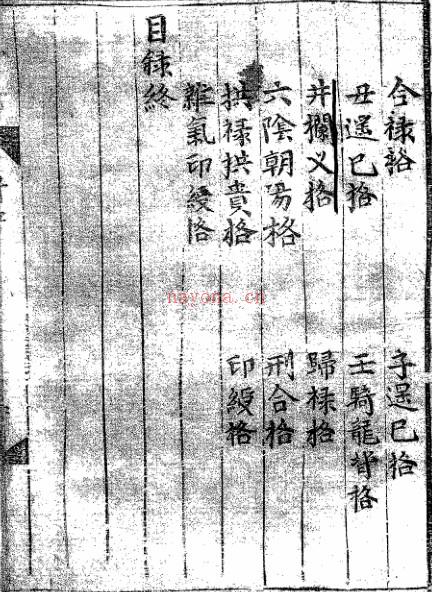 合祿格 子遥巳格
丑遥巳格 壬騎龍背格
井攔义格 歸祿格
六陰朝陽格 刑合格
拱祿拱貴格 印綬格
雜氣印綬格
目錄終
nayona.cn